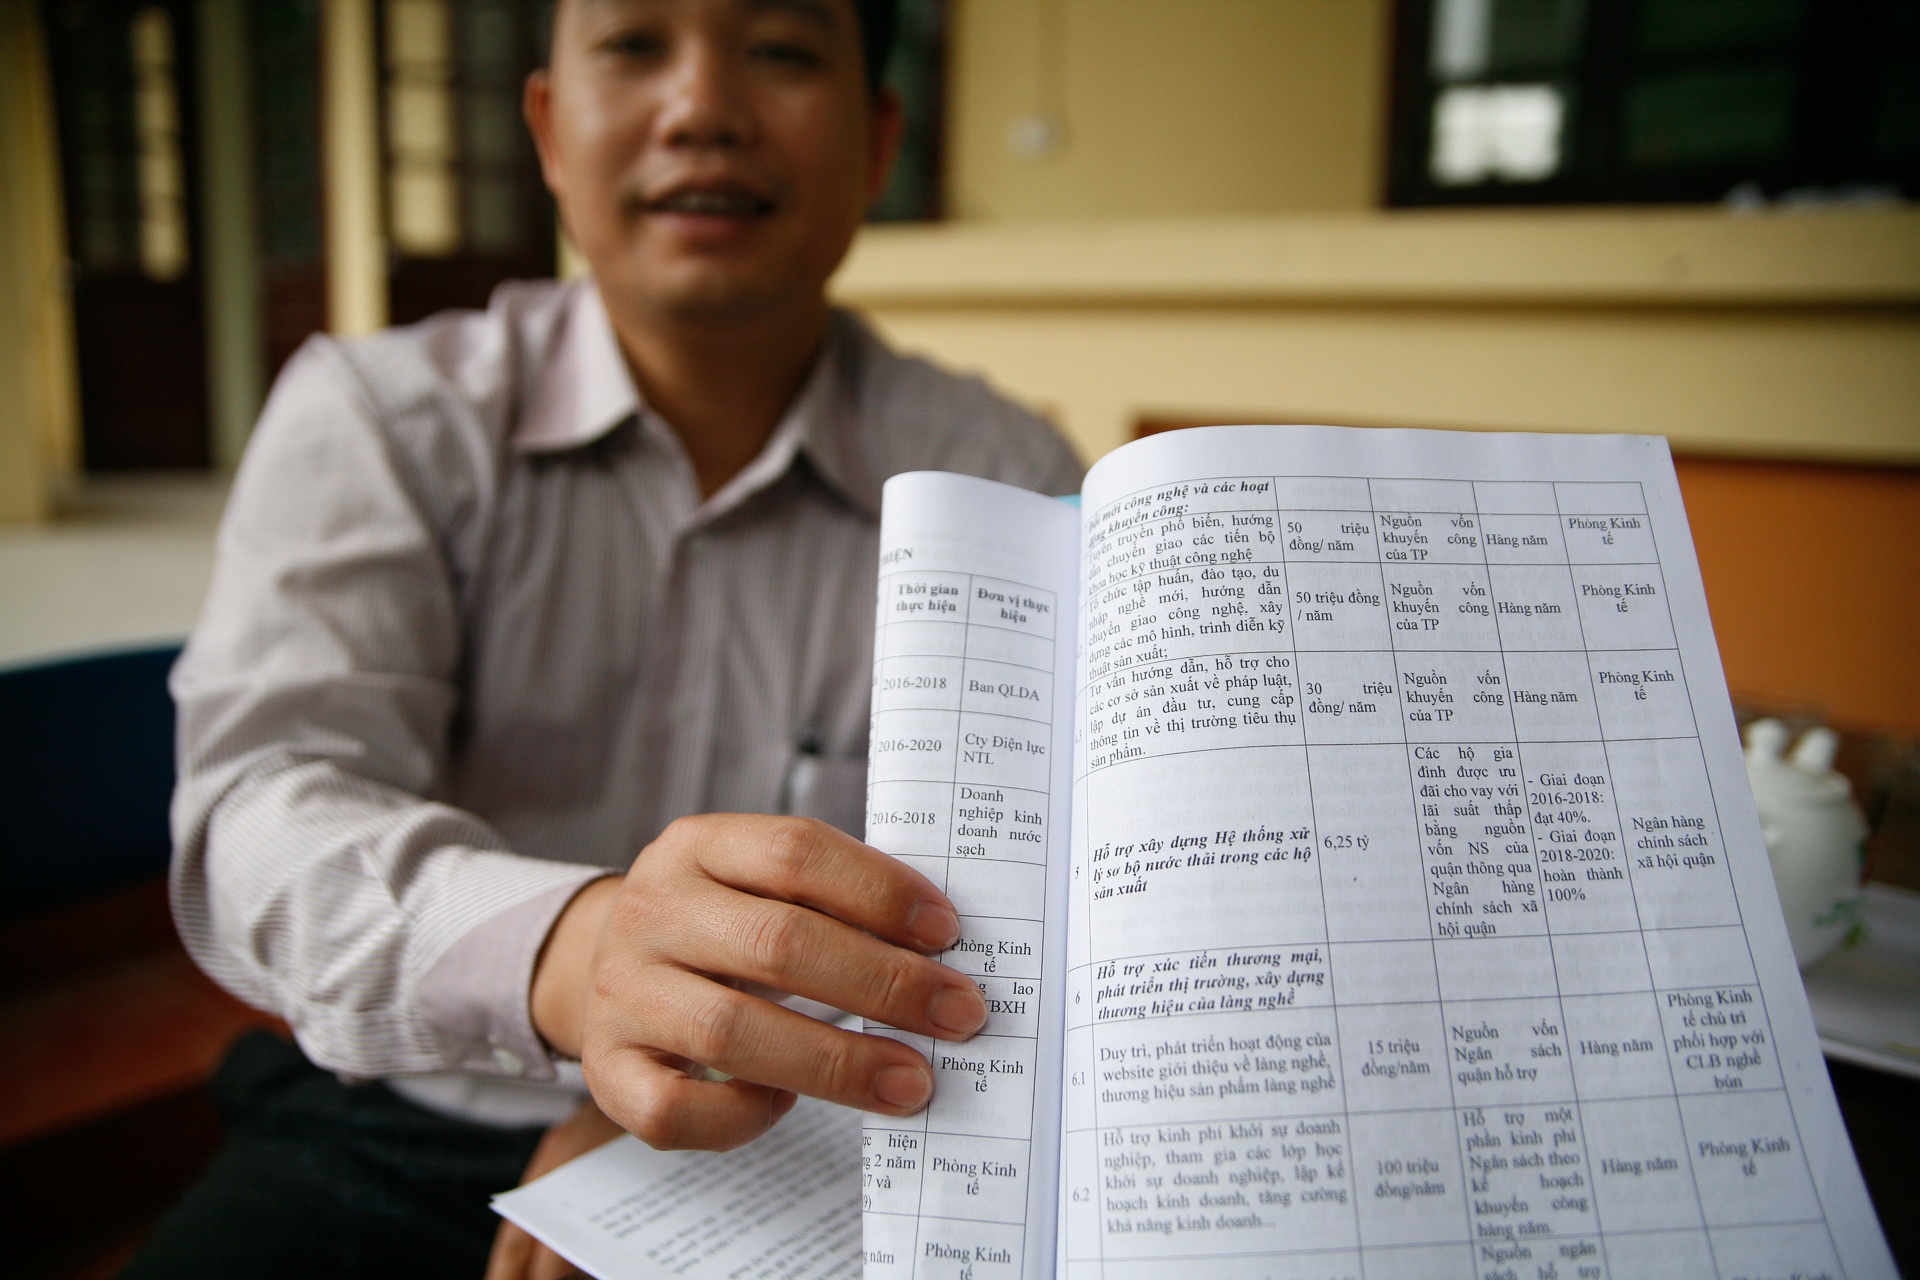 HIỆN
Thời gian
thực hiện
Đơn vị thực
hiện
2016-2018
Ban QLDA
2016-2020
Cty Điện lực
NTL
2016-2018
Doanh
nghiệp kinh
doanh nước
sạch
Phòng Kinh
tế
lao
TBXH
Phòng Kinh
tế
hiện
2 năm
và
Phòng Kinh
tế
năm
Phòng Kinh
tế
mới công nghệ và các hoạt
động khuyến công:
Tuyên truyền phổ biến, hướng
dẫn chuyển giao các tiến bộ
khoa học kỹ thuật công nghệ
50 triệu
đồng/ năm
Nguồn vốn
khuyến công
của TP
Hàng năm
Phòng Kinh
tế
Tổ chức tập huấn, đào tạo, du
nhập nghề mới, hướng dẫn
chuyển giao công nghệ, xây
dựng các mô hình, trình diễn kỹ
thuật sản xuất;
50 triệu đồng
/ năm
Nguồn vốn
khuyến công
của TP
Hàng năm
Phòng Kinh
tế
Tư vấn hướng dẫn, hỗ trợ cho
các cơ sở sản xuất về pháp luật,
lập dự án đầu tư, cung cấp
thông tin về thị trường tiêu thụ
sản phẩm.
30 triệu
đồng/ năm
Nguồn vốn
khuyến công
của TP
Hàng năm
Phòng Kinh
tế
5
Hỗ trợ xây dựng Hệ thống xử
lý sơ bộ nước thải trong các hộ
sản xuất
6,25 tỷ
Các hộ gia
đình được ưu
đãi cho vay với
lãi suất thấp
bằng nguồn
vốn NS của
quận thông qua
Ngân hàng
chính sách xã
hội quận
- Giai đoạn
2016-2018:
đạt 40%.
- Giai đoạn
2018-2020:
hoàn thành
100%
Ngân hàng
chính sách
xã hội quận
6
Hỗ trợ xúc tiến thương mại,
phát triển thị trường, xây dựng
thương hiệu của làng nghề
6.1
Duy trì, phát triển hoạt động của
website giới thiệu về làng nghề,
thương hiệu sản phẩm làng nghề
15 triệu
đồng/năm
Nguồn vốn
Ngân sách
quận hỗ trợ
Hàng năm
Phòng Kinh
tế chủ trì
phối hợp với
CLB nghề
bún
6.2
Hỗ trợ kinh phí khởi sự doanh
nghiệp, tham gia các lớp học
khởi sự doanh nghiệp, lập kế
hoạch kinh doanh, tăng cường
khả năng kinh doanh...
100 triệu
đồng/năm
Hỗ trợ một
phần kinh phí
Ngân sách theo
kế hoạch
khuyến công
hàng năm.
Hàng năm
Phòng Kinh
tế
Nguồn ngân
sách hỗ trợ